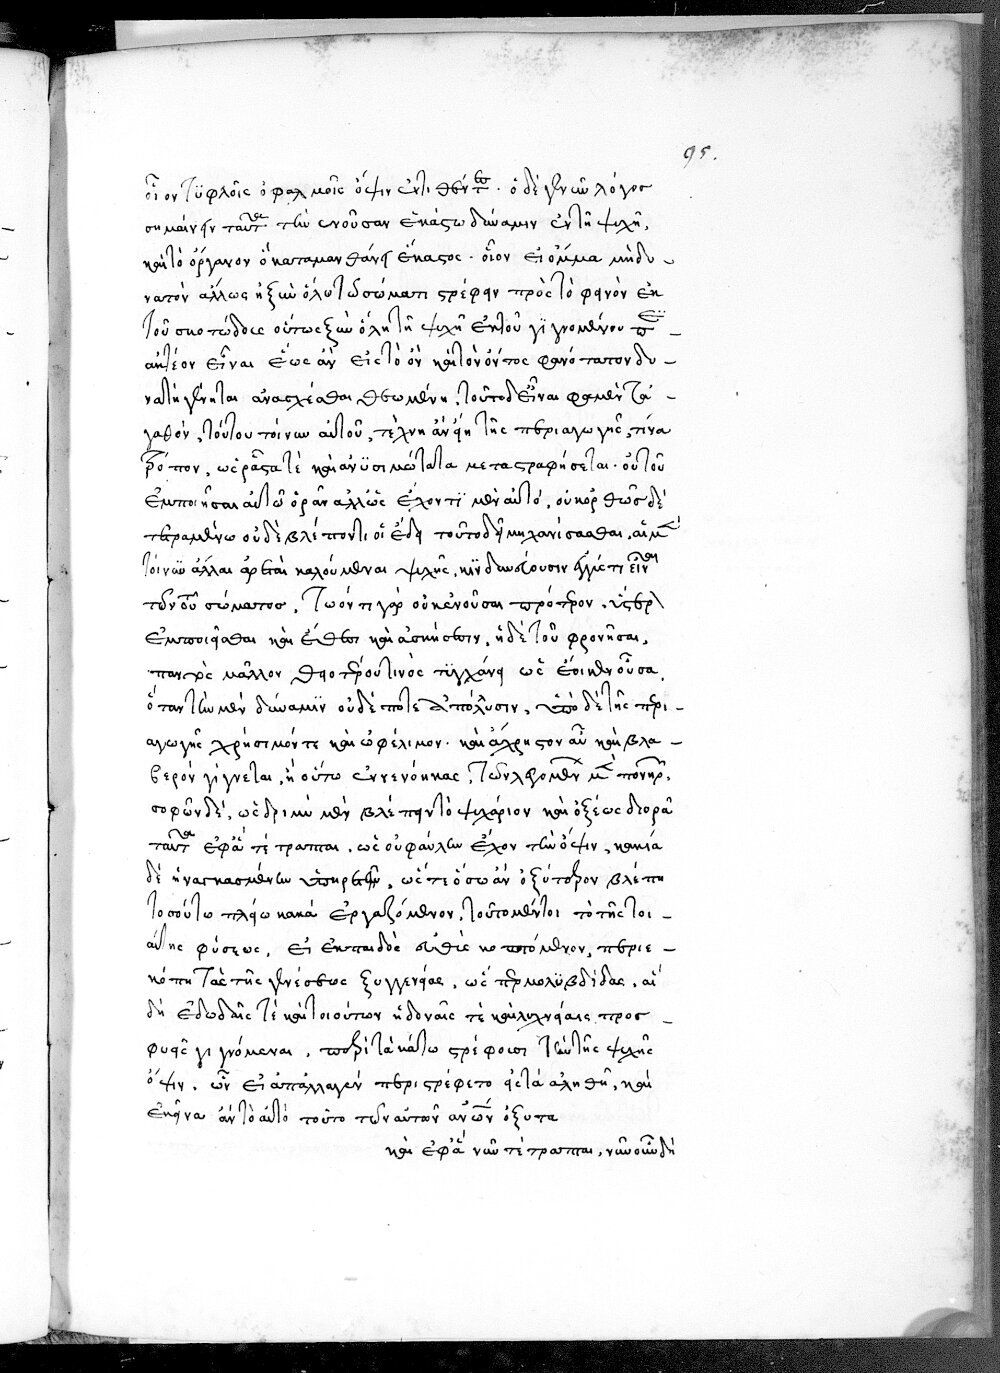 95.
οἷον τυφλοῖς ὀφθαλμοῖς ὄψιν ἐντιθέντες. ὁ δέ γε νῦν λόγος
σημαίνει ταύτην τὴν ἐνοῦσαν ἑκάστω δύναμιν ἐν τῇ ψυχῇ,
καὶ τὸ ὄργανον ὃ καταμανθάνει ἕκαστος. οἷον εἰ ὄμμα μὴ δυ-
νατὸν ἄλλως ἢ ξὺν ὅλῳ τῷ σώματι στρέφειν πρὸς τὸ φανὸν ἐκ
τοῦ σκοτώδους οὕτως ξὺν ὅλη τῇ ψυχῇ ἐκ τοῦ γϊγνομένου περι-
ακτέον εἶναι ἕως ἂν εἰς τὸ ὂν καὶ τὸν ὄντος φανότατον δυ-
νατὴ γένηται ἀνασχέσθαι θεωμένη, τοῦτο δ' εἶναι φαμὲν τἀ-
γαθόν, τούτου τοίνυν αὐτοῦ, τέχνη ἂν εἴη τῆς περιαγωγῆς, τίνα
τρόπον, ὡς ῥᾷστα τὲ καὶ ἀνϋσιμώτατα μεταστραφήσεται. οὐ τοῦ
ἐμποιῆσαι αὐτῶ ὁρᾶν ἀλλ' ὡς ἔχοντϊ μὲν αὐτό, οὐκ ὀρθῶς δὲ
τετραμμένω οὐδὲ βλέποντι οἷ ἔδει τοῦτο δὴ μηχανίσασθαι, αἱ μὲν
τοίνυν ἄλλαι ἀρεταὶ καλούμεναι ψυχῆς, κϊνδυνεύουσιν ἐγγύς τι εἶναι
τῶν τοῦ σώματος, τῷ ὄντι γὰρ οὐκ ἐνοῦσαι πρότερον, ὕστερον
ἐμποιεῖσθαι καὶ ἔθεσι καὶ ἀσκήσεσιν, ἡ δὲ τοῦ φρονῆσαι,
παντὸς μᾶλλον θειοτέρου τινὸς τϋγχάνει ὡς ἔοικεν οὖσα,
ὃ παντὼν μὲν δύναμϊν οὐδέποτε ἀπόλλυσιν, ὑπὸ δὲ τῆς περι-
αγωγῆς χρήσιμόν τε καὶ ὠφέλιμον. καὶ ἄχρηστον αὖ καὶ βλα-
βερὸν γίγνεται, ἢ οὔπω ἐννενόηκας, τῶν λεγομένων μὲν πονηρῶν,
σοφῶν δέ, ὡς δριμὺ μὲν βλέπει τὸ ψυχάριον καὶ ὀξέως διορᾶ
ταῦτα ἐφ' ἃ τέτραπται, ὡς οὐ φαύλην ἔχον τὴν ὄψιν, κακία
δὲ ἠναγκασμένην ὑπηρετεῖν, ὥστε ὅσω ἂν ὀξύτερον βλέπη
τοσούτω πλείω κακὰ ἐργαζόμενον, τοῦτο μέντοι τὸ τῆς τοι-
αύτης φύσεως, εἰ ἐκ παιδὸς εὐθὺς κοπτόμενον, περιε-
κόπη τὰς τῆς γενέσεως ξυγγενείας, ὡς περ μολϋβδίδας, αἳ
δὴ ἐδωδαῖς τὲ καὶ τοιούτων ἡδοναῖς τὲ καὶ λιχνείαις προσ-
φυεῖς γιγνόμεναι, περὶ τὰ κάτω στρέφουσι τὴν τῆς ψυχῆς
ὄψιν, ὧν εἰ ἀπαλλαγὲν περιστρέφετο εἰς τὰ ἀληθῆ, καὶ
ἐκεῖνα ἂν τὸ αὐτὸ τοῦτο τῶν αὐτῶν ἀνθρώπων ὀξυτα
καὶ ἐφ' ἃ νῦν τέτραπται, νῦν οὖν δὴ